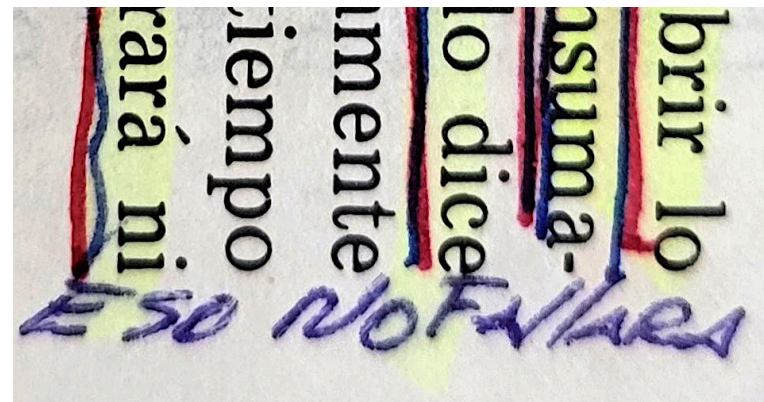 brir lo
nsuma-
lo dice
mente
iempo
rará ni
ESO NO FALLARA